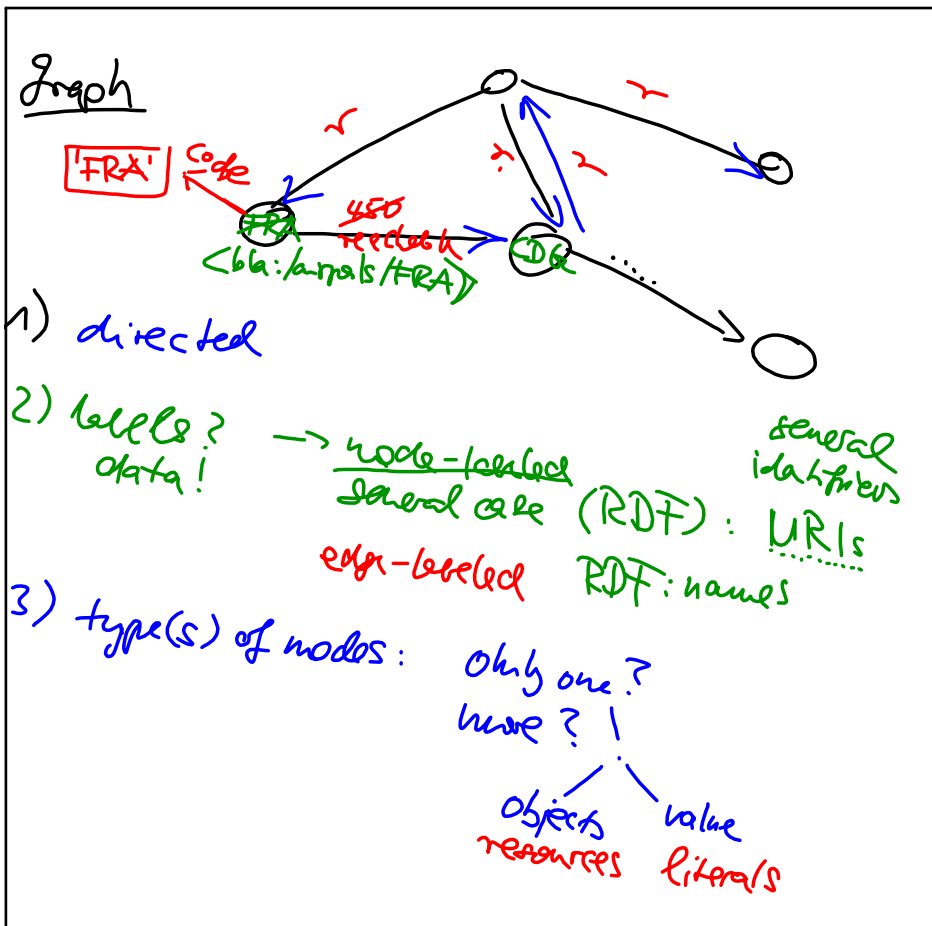 Graph
r
r
'FRA' code
r
r
FRA
450
reachable
CDG
.....
<bla:/airports/FRA>
1) directed
2) labels? → node-labeled
data!
general
identifiers
general case (RDF): URIs
edge-labeled RDF: names
3) type(s) of nodes: only one?
more?
objects value
resources literals